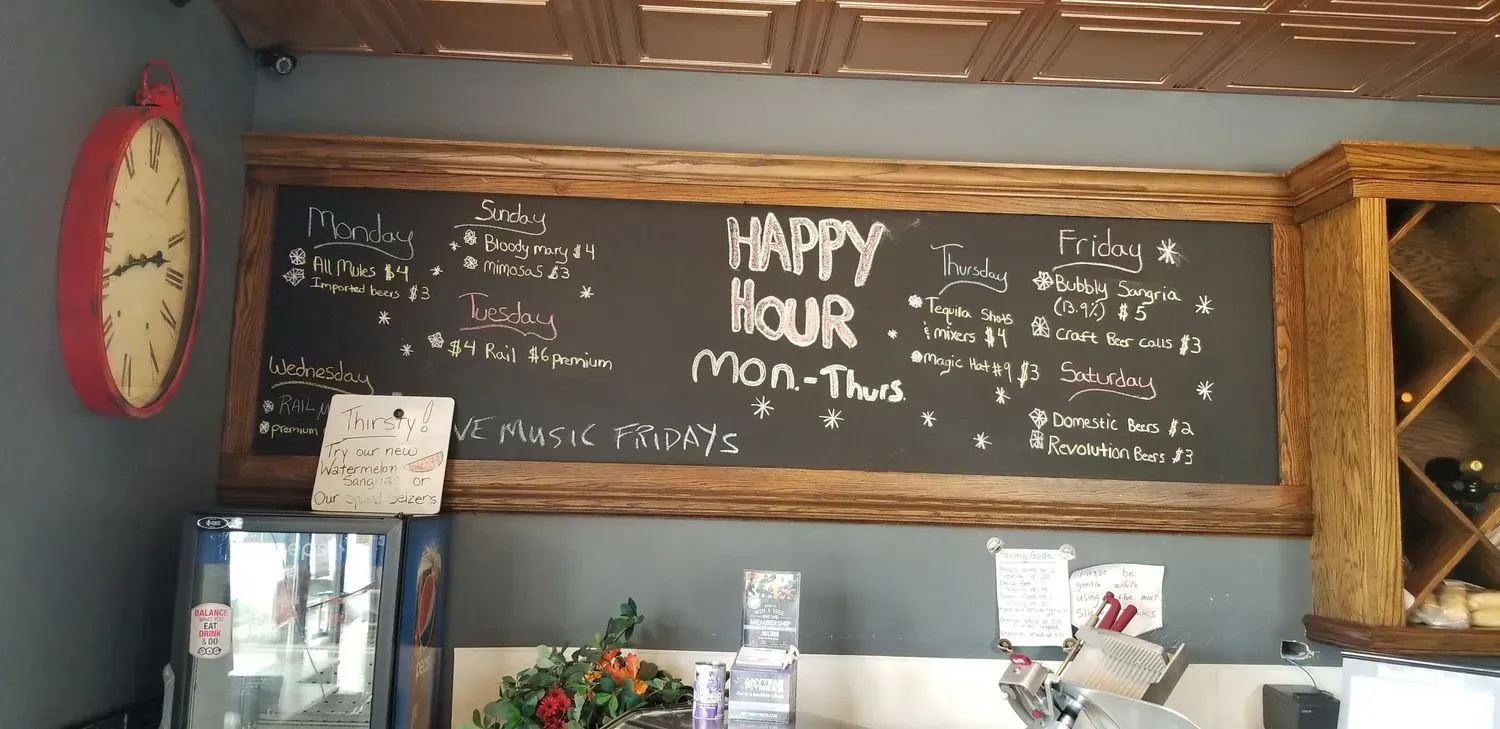 Monday
All Mules $4
Imported beers $3
Sunday
Bloody mary $4
mimosas $3
Tuesday
$4 Rail $6 premium
Wednesday
RAIL
premium
VE MUSIC FRIDAYS
HAPPY
HOUR
Mon.-Thurs.
Thursday
Tequila Shots
& mixers $4
Magic Hat #9 $3
Friday
Bubbly Sangria
(13.9%) $5
Craft Beer calls $3
Saturday
Domestic Beers $2
Revolution Beers $3
Thirsty!
Try our new
Watermelon
Sangria or
Our Seizers
BALANCE
WHAT YOU
EAT
DRINK
& DO
WITH A FREE
MEMBERSHIP
ANYTIME
FITNESS
Slicing Guide
Please be
gentle while
using the meat